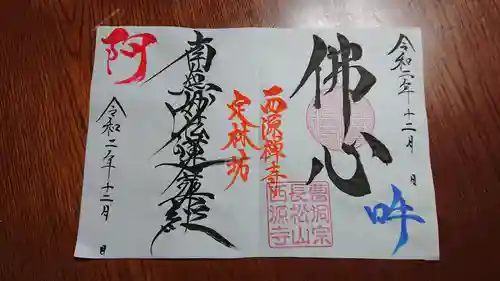 令和二年十二月 日
佛心
吽
西源禅寺
定林坊
曹洞宗
長松山
西源寺
南無妙法蓮華経
阿
令和二年十二月 日